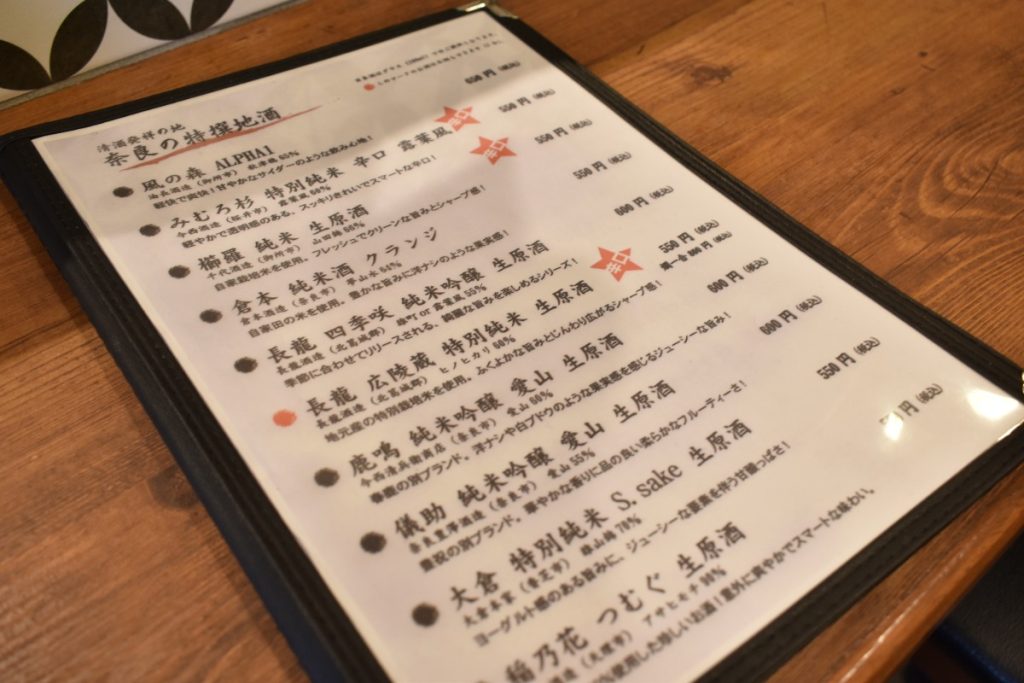 清酒発祥の地
奈良の特撰地酒
風の森 ALPHA1 650円(税込)
油長酒造(御所市) 秋津穂65%
軽快で爽快!甘やかなサイダーのような飲み心地!
みむろ杉 特別純米 辛口 露葉風 辛口 550円(税込)
今西酒造(桜井市) 露葉風60%
軽やかで透明感のある、スッキリきれいでスマートな辛口!
櫛羅 純米 生原酒 辛口 550円(税込)
千代酒造(御所市) 山田錦60%
自家栽培米を使用。フレッシュでクリーンな旨みとシャープ感!
倉本 純米酒 クランジ 550円(税込)
倉本酒造(奈良市)
自家田の米を使用。豊かな旨みに洋ナシのような果実感!
長龍 四季咲 純米吟醸 生原酒 600円(税込)
長龍酒造(北葛城郡) 雄町or露葉風55%
季節に合わせてリリースされる、綺麗な旨みを楽しめるシリーズ!
長龍 広陵蔵 特別純米 生原酒 辛口 550円(税込)
長龍酒造(北葛城郡) ヒノヒカリ60%
地元産の特別栽培米を使用。ふくよかな旨みとじんわり広がるシャープ感!
鹿鳴 純米吟醸 愛山 生原酒 600円(税込)
今西清兵衛商店(奈良市) 愛山60%
春鹿の別ブランド。洋ナシや白ブドウのような果実感を感じるジューシーな旨み!
儀助 純米吟醸 愛山 生原酒 600円(税込)
奈良豊澤酒造(奈良市) 愛山55%
豊祝の別ブランド。華やかな香りに品の良い柔らかなフルーティーさ!
大倉 特別純米 S.sake 生原酒 550円(税込)
大倉本家(香芝市) 雄山錦70%
ヨーグルト感のある旨みに、ジューシーな酸素を伴う甘酸っぱさ!
稲乃花 つむぐ 生原酒 円(税込)
酒造(天理市) アサヒモチ90%
使用した珍しいお酒!意外に爽やかでスマートな味わい。